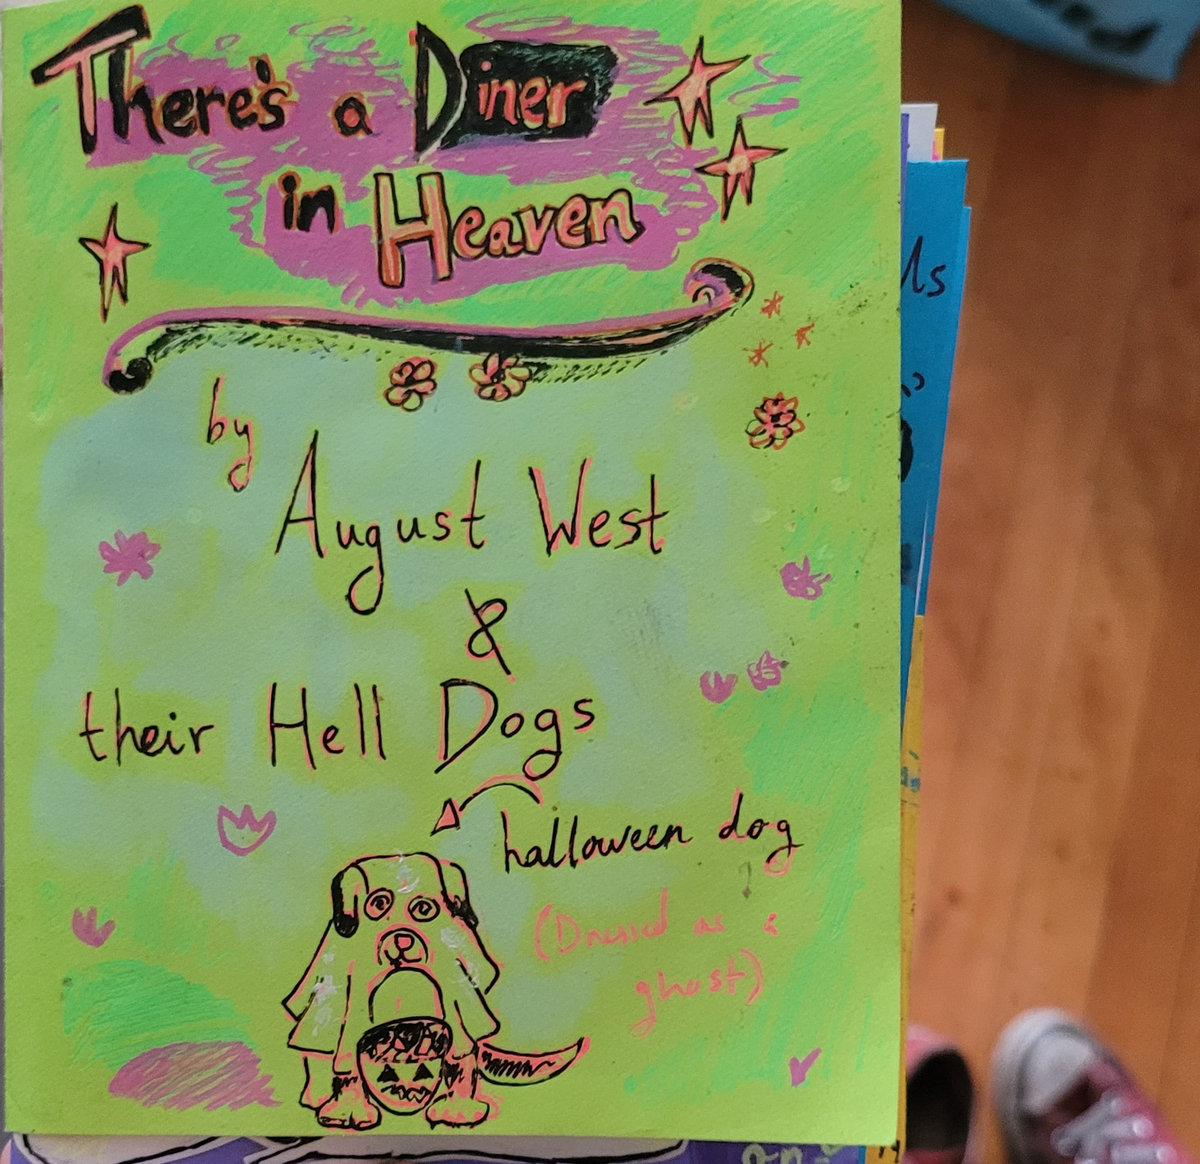 There's a Diner
in Heaven
by
August West
&
their Hell Dogs
halloween dog
(Dressed as a
ghost)